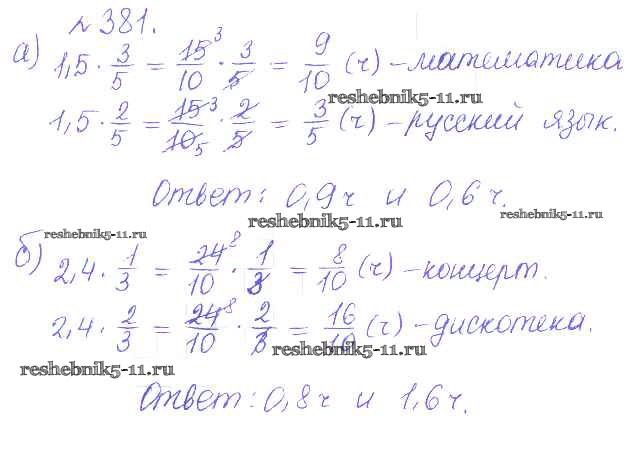 №381.
а) 1,5 · 3/5 = 15³/10 · 3/5 = 9/10 (ч) – математика
reshebnik5-11.ru
1,5 · 2/5 = 15³/10₅ · 2/5 = 3/5 (ч) – русский язык.
Ответ: 0,9ч и 0,6ч.
reshebnik5-11.ru
reshebnik5-11.ru
reshebnik5-11.ru
б) 2,4 · 1/3 = 24⁸/10 · 1/3 = 8/10 (ч) – концерт.
2,4 · 2/3 = 24⁸/10 · 2/3 = 16/10 (ч) – дискотека.
reshebnik5-11.ru
reshebnik5-11.ru
Ответ: 0,8ч и 1,6ч.